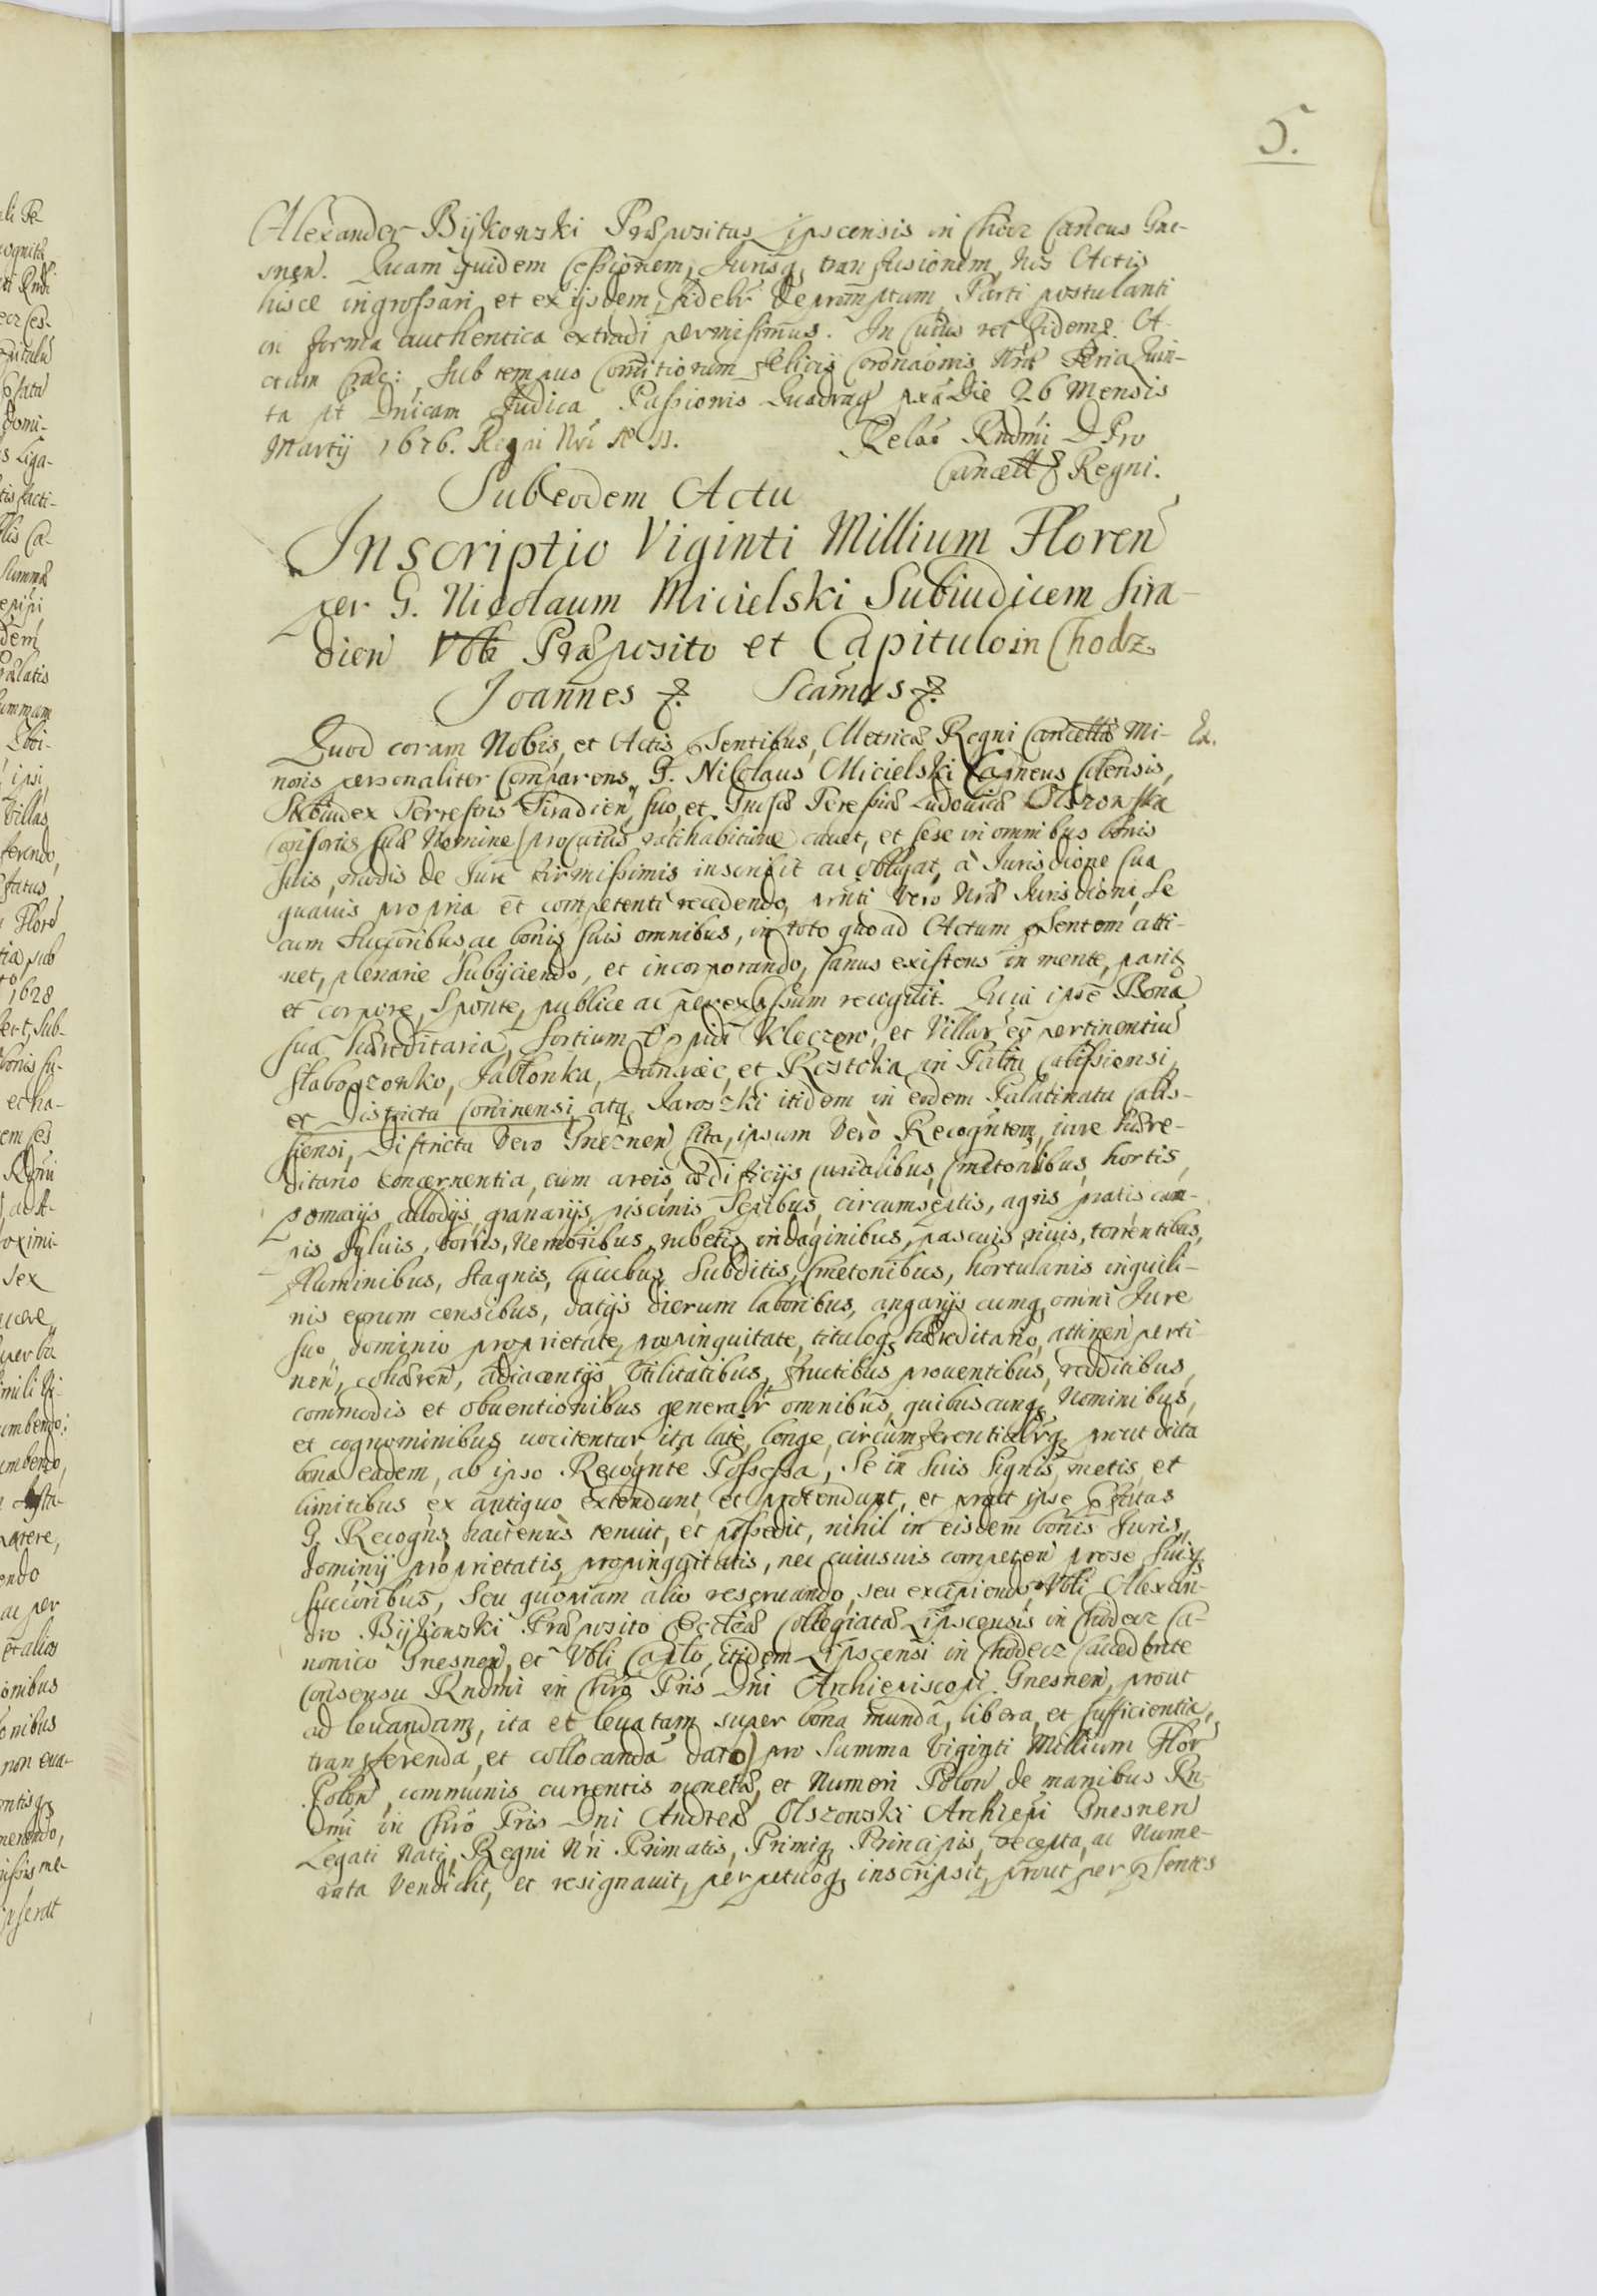 5.
Alexander Bykowski Præpositus Lipscensis in Chocz Cancus Gne-
snen. Quam quidem Cessionem, Jurisq, transfusionem, Nos Actis
hisce ingrossari, et ex ijsdem, fideli depromptum Parti postulanti
in forma authentica extradi permisimus. In Cuius rei fidem &. A-
ctum Crac: sub tempus Comitiorum felicis Coronaonis Nræ Feria Quin-
ta pt Dnicam Judica Passionis Quadrag pxa Die 26 Mensis
Martij 1676. Regni Nri Ao II.
Relao Rndmi D Pro
Cancell & Regni.
Sub eodem Actu
Inscriptio Viginti Millium Floren
per G. Nicolaum Micielski Subiudicem Sira-
dien Vbli Præposito et Capitulo in Chodz.
Joannes &. Scamus &.
Quod coram Nobis, et Actis pSentibus, Metricæ Regni Cancellæ Mi-
Ex.
noris personaliter Comparens, G. Nicolaus Micielski Capneus Colensis,
Subiudex Terrestris Siradien, suo, et Gnisæ Teressiæ Ludovicæ Olszowska
Consortis suæ Nomine, pro cuius ratihabitione cauet, et sese in omnibus bonis
suis, modis de Jure firmissimis inscribit ac obligat, à Jurisdione sua
quauis propria et competenti recedendo, prnti Vero Nræ Jurisdioni, Se
cum Succoribus ac bonis suis omnibus, in toto quo ad Actum pSentem atti-
net, plenarie Subijciendo, et incorporando, sanus existens in mente, pariq
et corpore, Sponte, publice ac per expssum recognit. Quia ipse Bona
sua hæreditaria, Sortium Oppidi Kleczew, et Villar eo pertinentiu
Slaboszowko, Jabłonka, et Rostoka in Paltu Calissiensi,
et Districtu Coninensi, atq Jaroszki itidem in eodem Palatinatu Calis-
siensi, Districtu Vero Gneznen sita, ipsum Verò Recogntem, iure hære-
ditario concernentia, cum areis, ædificijs Curialibus, Cmetonibus, hortis,
pomarijs allodijs, granarijs, piscinis Sepibus, circumseptis, agris pratis cam-
pis syluis, borris, Nemoribus, rubetis indaginibus, pascuis, riuis, torrentibus,
fluminibus, stagnis, lacubus Subditis, Cmetonibus, hortulanis inquili-
nis eorum censibus, datijs dierum laboribus, angarijs cumq omni Jure
suo, dominio proprietate, propinquitate, tituloq hæreditario, attinen perti-
nen, cohæren, adiacentijs Vtilitatibus, fructibus prouentibus, redditibus,
commodis et obuentionibus generalr omnibus, quibuscunq Nominibus,
et cognominibus uocitentur ita late, longe, circumferentialrq prout dicta
bona eadem, ab ipso Recognte Possessa, Se in suis signis, metis et
limitibus ex antiquo extendunt et protendunt, et prout ipse
G. Recogns hactenùs tenuit, et possedit, nihil in eisdem bonis Juris,
dominij proprietatis, propinquitatis, nec cuiusuis competen pro se suisq
succoribus, seu quopiam alio reseruando, seu excipiendo, Vbli Alexan-
dro Bykowski Præposito Ecclæ Collegiatæ Lipscensis in Chodecz Ca-
nonico Gnesnen, et Vbli Caplo, itidem Lipscensi in Chodecz (accedente
Consensu Rndmi in Chro Pris Dni Archiepiscopi Gnesnen, prout
ad leuandam, ita et leuatam super bona munda, libera, et sufficientia,
transferenda, et collocanda dato) pro Summa Viginti Millium Flor
Polon, communis currentis monetæ, et Numeri Polon, de manibus Rn-
dmi in Chro Pris Dni Andreæ Olszowski Archiepi Gnesnen
Legati Nati, Regni Nri Primatis, Primiq Principis, recepta, ac Nume-
rata Vendidit, et resignauit, perpetuoq inscripsit, prout per pSentes